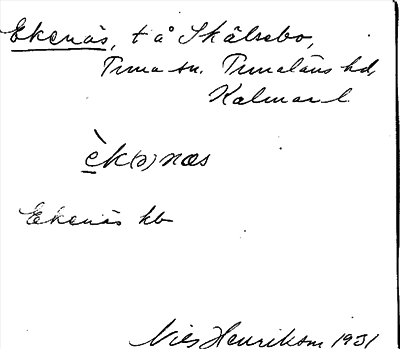 Ekenäs, t å Skälsebo,
Tuna sn. Tunaläns hd,
Kalmar l.
èk(ə)næs
Ekenäs kb
Nils Henrikson 1931